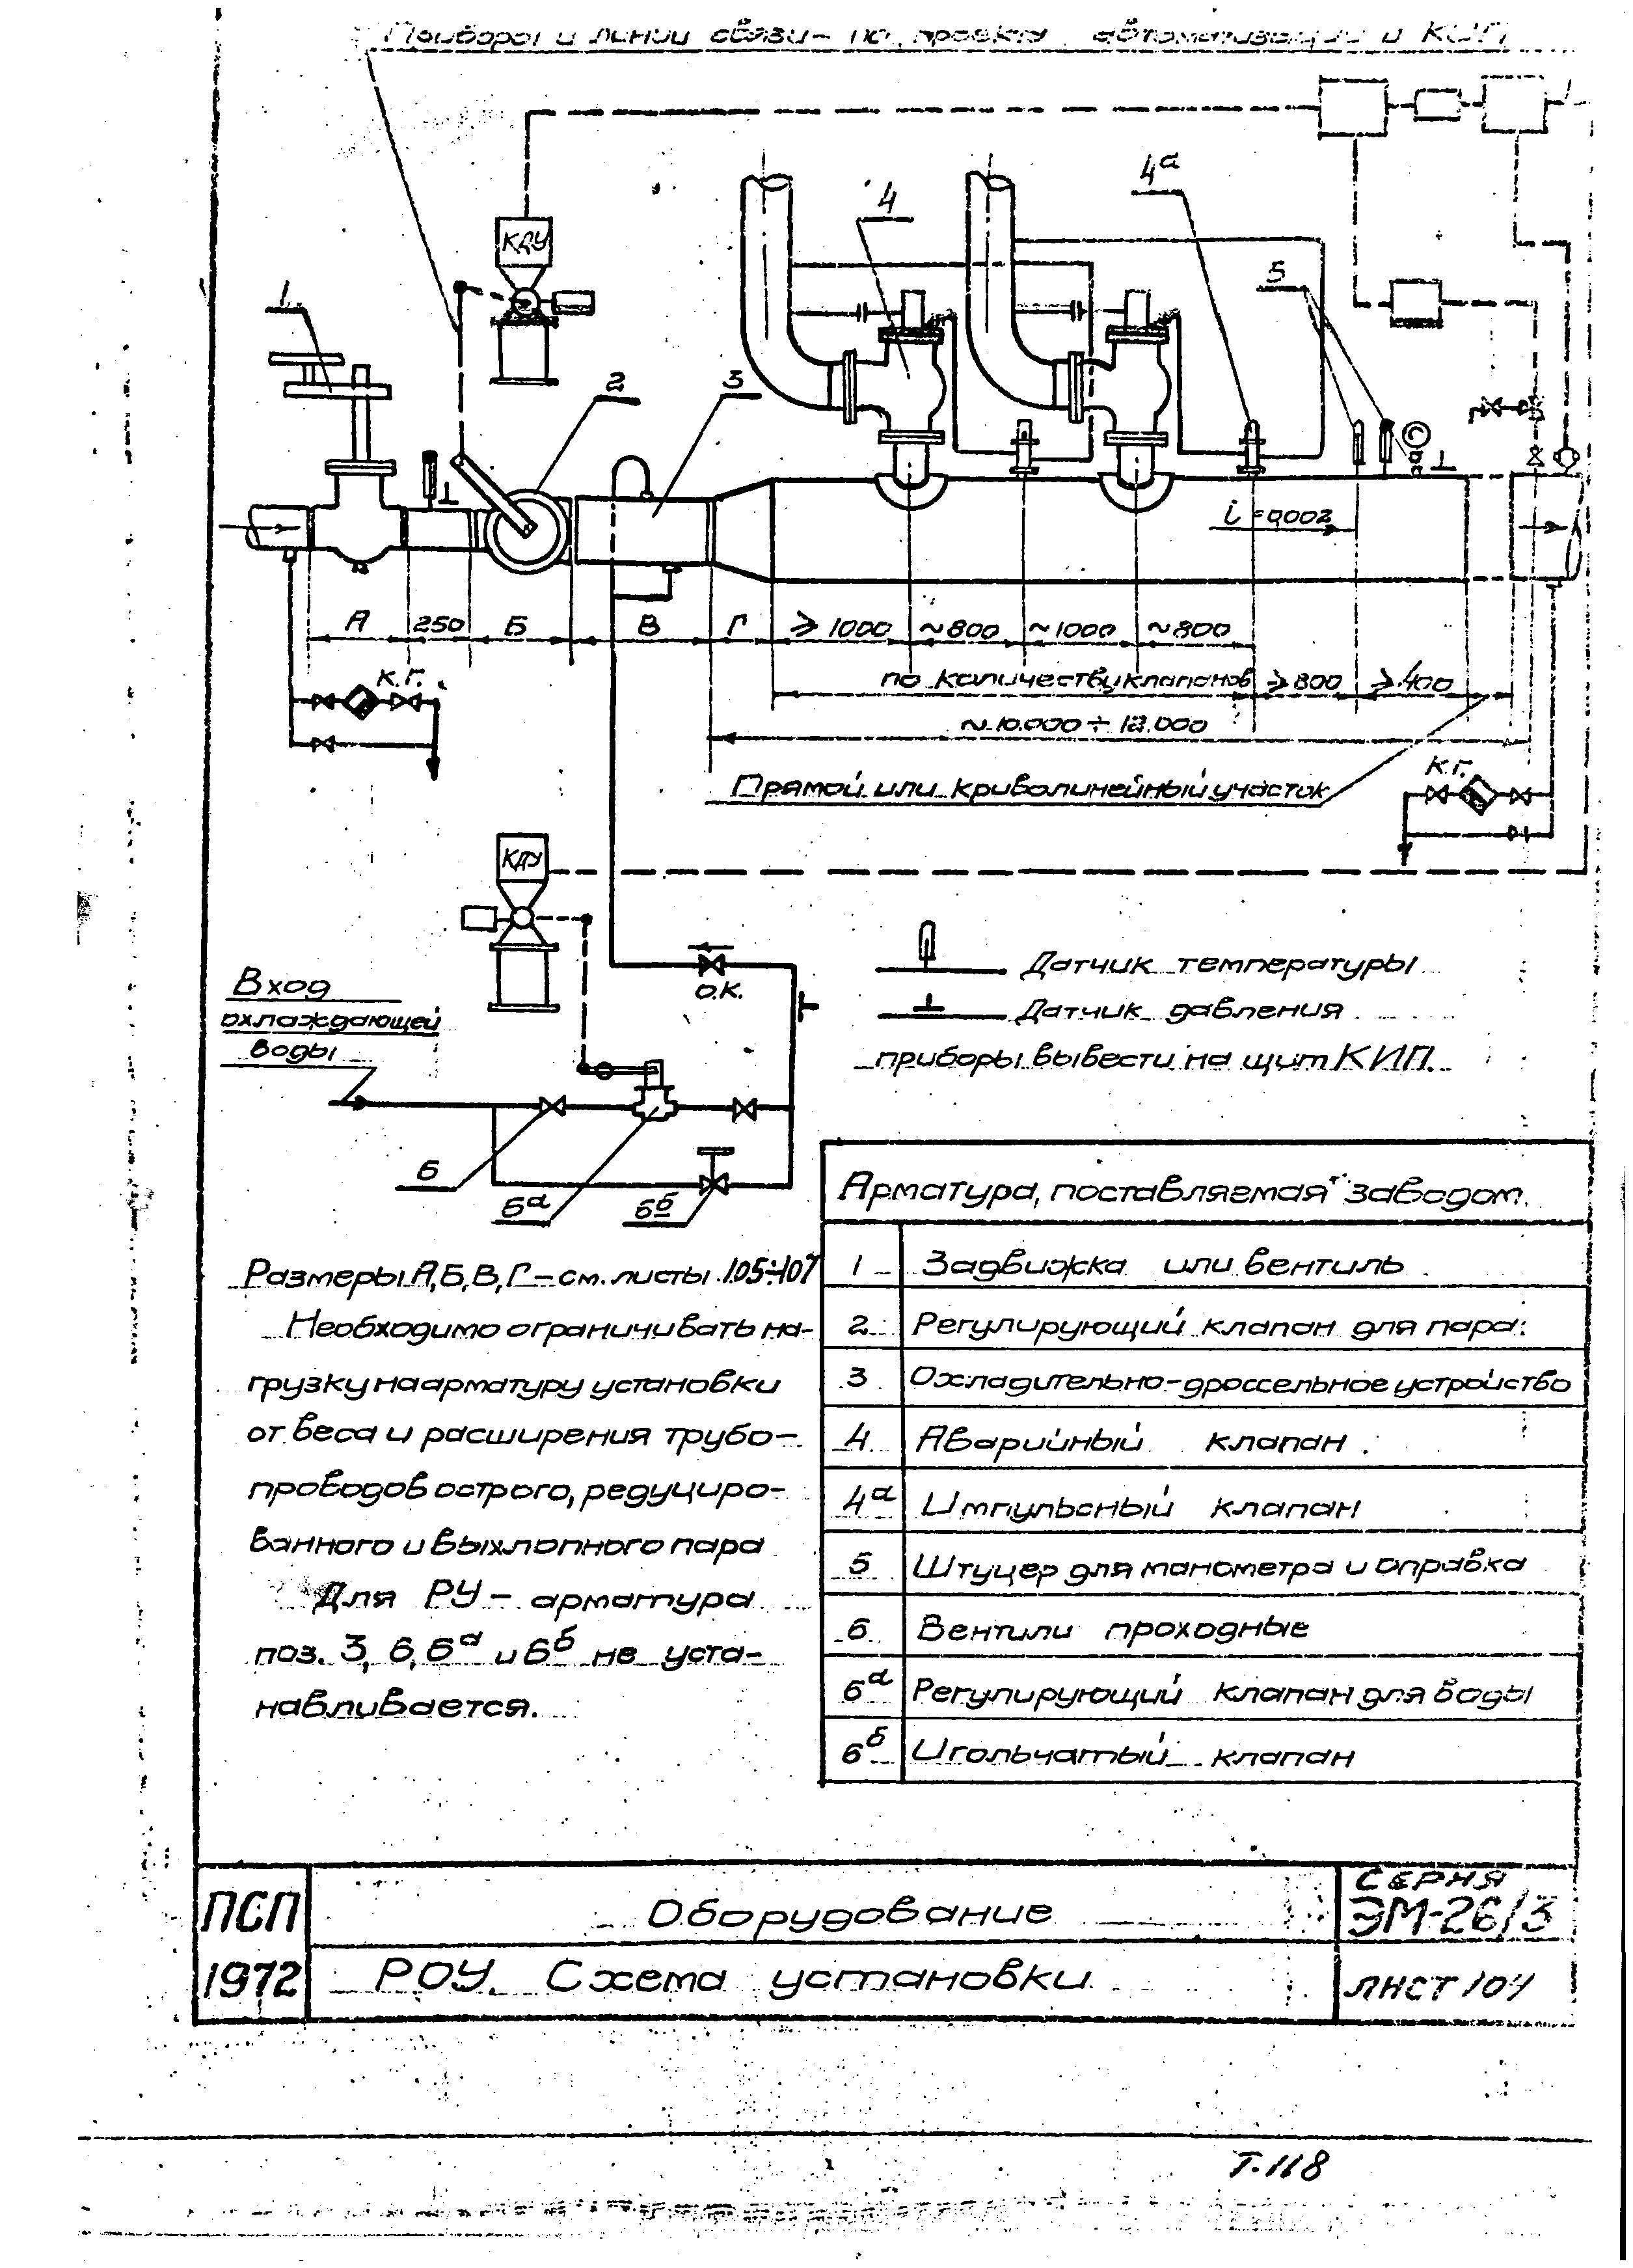 Приборы и линии связи – по проекту автоматизации и КИП
КДУ
4
4а
5
1
2
3
i=0,002
А
250
Б
В
Г
≥ 1000
~800
~1000
~800
по количеству клапанов
≥800
≥400
~10.000 ÷ 12.000
К.Г.
Прямой или криволинейный участок
К.Г.
КДУ
О.К.
Вход
охлаждающей
воды
Датчик температуры
Датчик давления
приборы вывести на щит КИП.
6
6а
6б
Арматура, поставляемая заводом.
1 Задвижка или вентиль
2 Регулирующий клапан для пара
3 Охладительно-дроссельное устройство
4 Аварийный клапан
4а Импульсный клапан
5 Штуцер для манометра и оправка
6 Вентили проходные
6а Регулирующий клапан для воды
6б Игольчатый клапан
Размеры А,Б,В,Г – см. листы 105÷107
Необходимо ограничивать на-
грузку на арматуру установки
от веса и расширения трубо-
проводов острого, редуциро-
ванного и выхлопного пара
Для РУ – арматура
поз. 3, 6, 6а и 6б не уста-
навливается.
ПСП
1972
Оборудование
РОУ. Схема установки
СЕРИЯ
ЭМ-26/3
ЛИСТ 104
Т-118